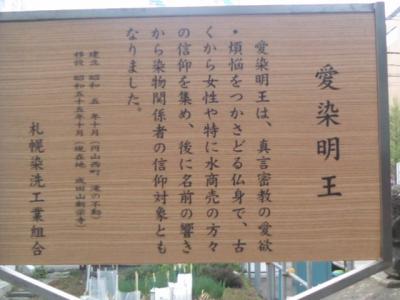 愛染明王
愛染明王は、真言密教の愛欲
・煩悩をつかさどる仏身で、古
くから女性や特に水商売の方々
の信仰を集め、後に名前の響き
から染物関係者の信仰対象とも
なりました。
建立 昭和 五年十月(円山西町 滝の不動)
移設 昭和五十五年十月(現在地 成田山新栄寺)
札幌染洗工業組合